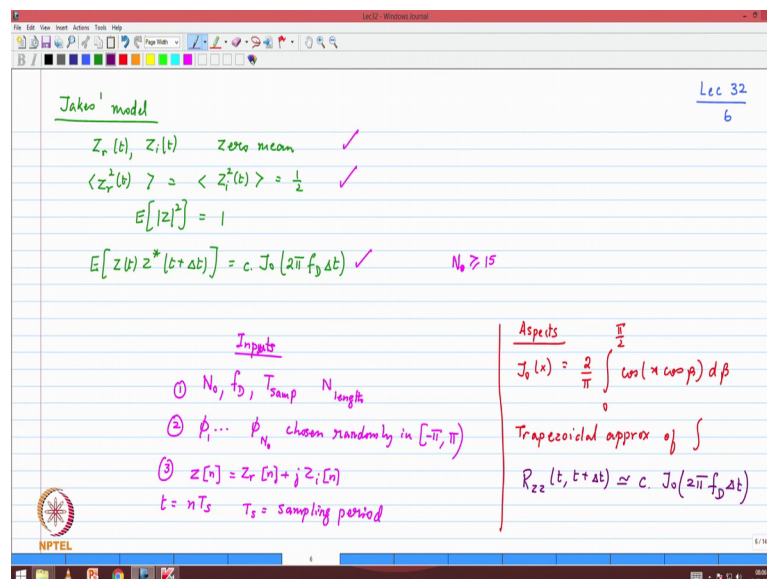 Lec32 - Windows Journal
File Edit View Insert Actions Tools Help
Page Width
B I
Lec 32
6
Jakes' model
Z_r(t), Z_i(t) zero mean ✓
<Z_r²(t)> = <Z_i²(t)> = 1/2 ✓
E[|Z|²] = 1
E[Z(t) Z*(t+Δt)] = c. J₀(2π f_D Δt) ✓ N₀ ⩾ 15
Inputs
① N₀, f_D, T_samp N_length
② ϕ₁ ... ϕ_N₀ chosen randomly in [-π, π)
③ z[n] = Z_r[n] + j Z_i[n]
t = nT_s T_s = sampling period
Aspects
J₀(x) = 2/π ∫₀^(π/2) cos(x cos β) dβ
Trapezoidal approx of ∫
R_zz(t, t+Δt) ≃ c. J₀(2π f_D Δt)
NPTEL
6
6/14